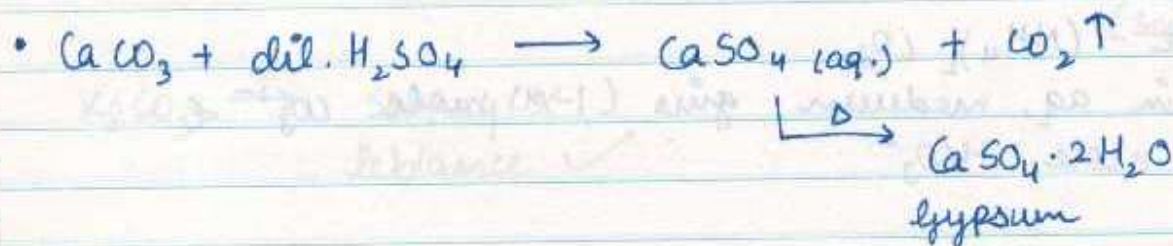 • CaCO₃ + dil. H₂SO₄ ⟶ CaSO₄ (aq.) + CO₂↑
Δ
CaSO₄·2H₂O
Gypsum